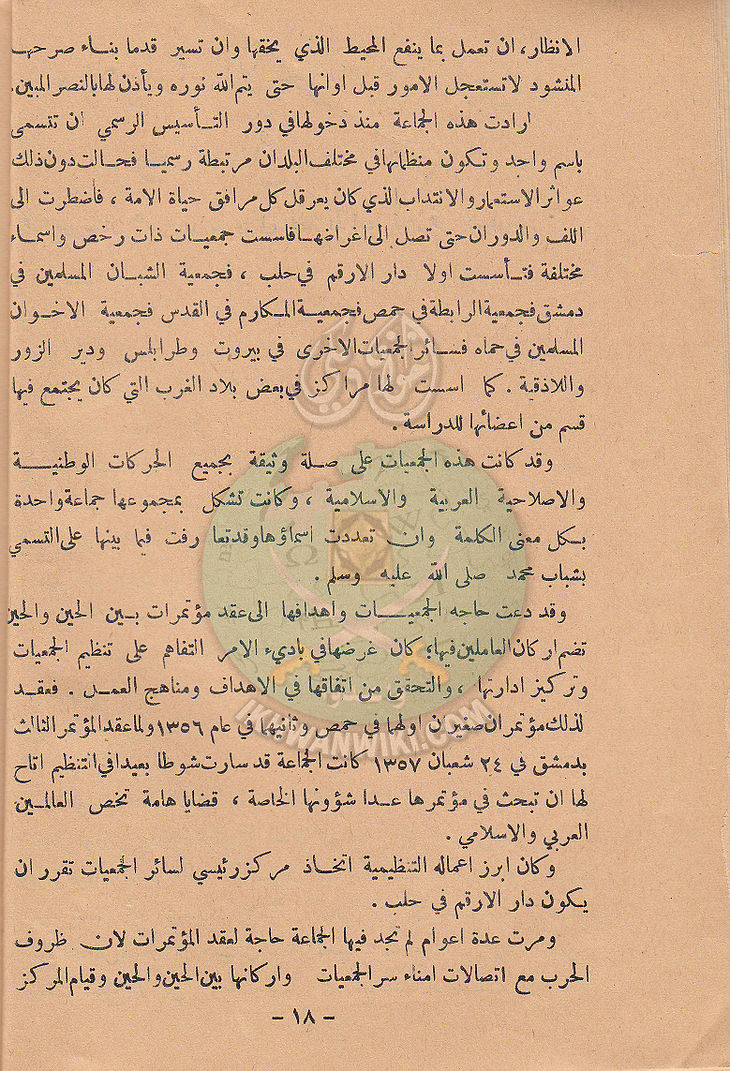 الانظار، ان تعمل بما ينفع المحيط الذي يخفقها وان تسير قدما بناء صرحها
المنشود لا تستعجل الامور قبل اوانها حتى يتم الله نوره ويأذن لها بالنصر المبين.
ارادت هذه الجماعة منذ دخولها في دور التأسيس الرسمي ان تتسمى
باسم واحد وتكون منظماتها في مختلف البلدان مرتبطة رسميا فحالت دون ذلك
عواثر الاستعمار والانتداب الذي كان يعرقل كل مرافق حياة الامة ، فأضطرت الى
اللف والدوران حتى تصل الى اغراضها فاسست جمعيات ذات رخص واسماء
مختلفة فتأسست اولا دار الارقم في حلب ، فجمعية الشبان المسلمين في
دمشق فجمعية الرابطة في حمص فجمعية المكارم في القدس فجمعية الاخوان
المسلمين في حماه فسائر الجمعيات الاخرى في بيروت وطرابلس ودير الزور
واللاذقية . كما اسست لها مراكز في بعض بلاد الغرب التي كان يجتمع فيها
قسم من اعضائها للدراسة .
وقد كانت هذه الجمعيات على صلة وثيقة بجميع الحركات الوطنية
والاصلاحية العربية والاسلامية ، وكانت تشكل بمجموعها جماعة واحدة
بكل معنى الكلمة وان تعددت اسماؤها وقد تعا رفت فيما بينها على التسمي
بشباب محمد صلى الله عليه وسلم .
وقد دعت حاجه الجمعيات واهدافها الى عقد مؤتمرات بين الحين والحين
تضم اركان العاملين فيها؛ كان غرضها في باديء الامر التفاهم على تنظيم الجمعيات
وتركيز ادارتها ، والتحقق من اتفاقها في الاهداف ومناهج العمل . فعقد
لذلك مؤتمران صغيران اولهما في حمص وثانيهما في عام ١٣٥٦ ولما عقد المؤتمر الثالث
بدمشق في ٢٤ شعبان ١٣٥٧ كانت الجماعة قد سارت شوطا بعيدا في التنظيم اتاح
لها ان تبحث في مؤتمرها عدا شؤونها الخاصة ، قضايا هامة تخص العالمين
العربي والاسلامي .
وكان ابرز اعماله التنظيمية اتخاذ مركز رئيسي لسائر الجمعيات تقرر ان
يكون دار الارقم في حلب .
ومرت عدة اعوام لم تجد فيها الجماعة حاجة لعقد المؤتمرات لان ظروف
الحرب مع اتصالات امناء سر الجمعيات واركانها بين الحين والحين وقيام المركز
- ١٨ -
IKHWANWIKI.COM